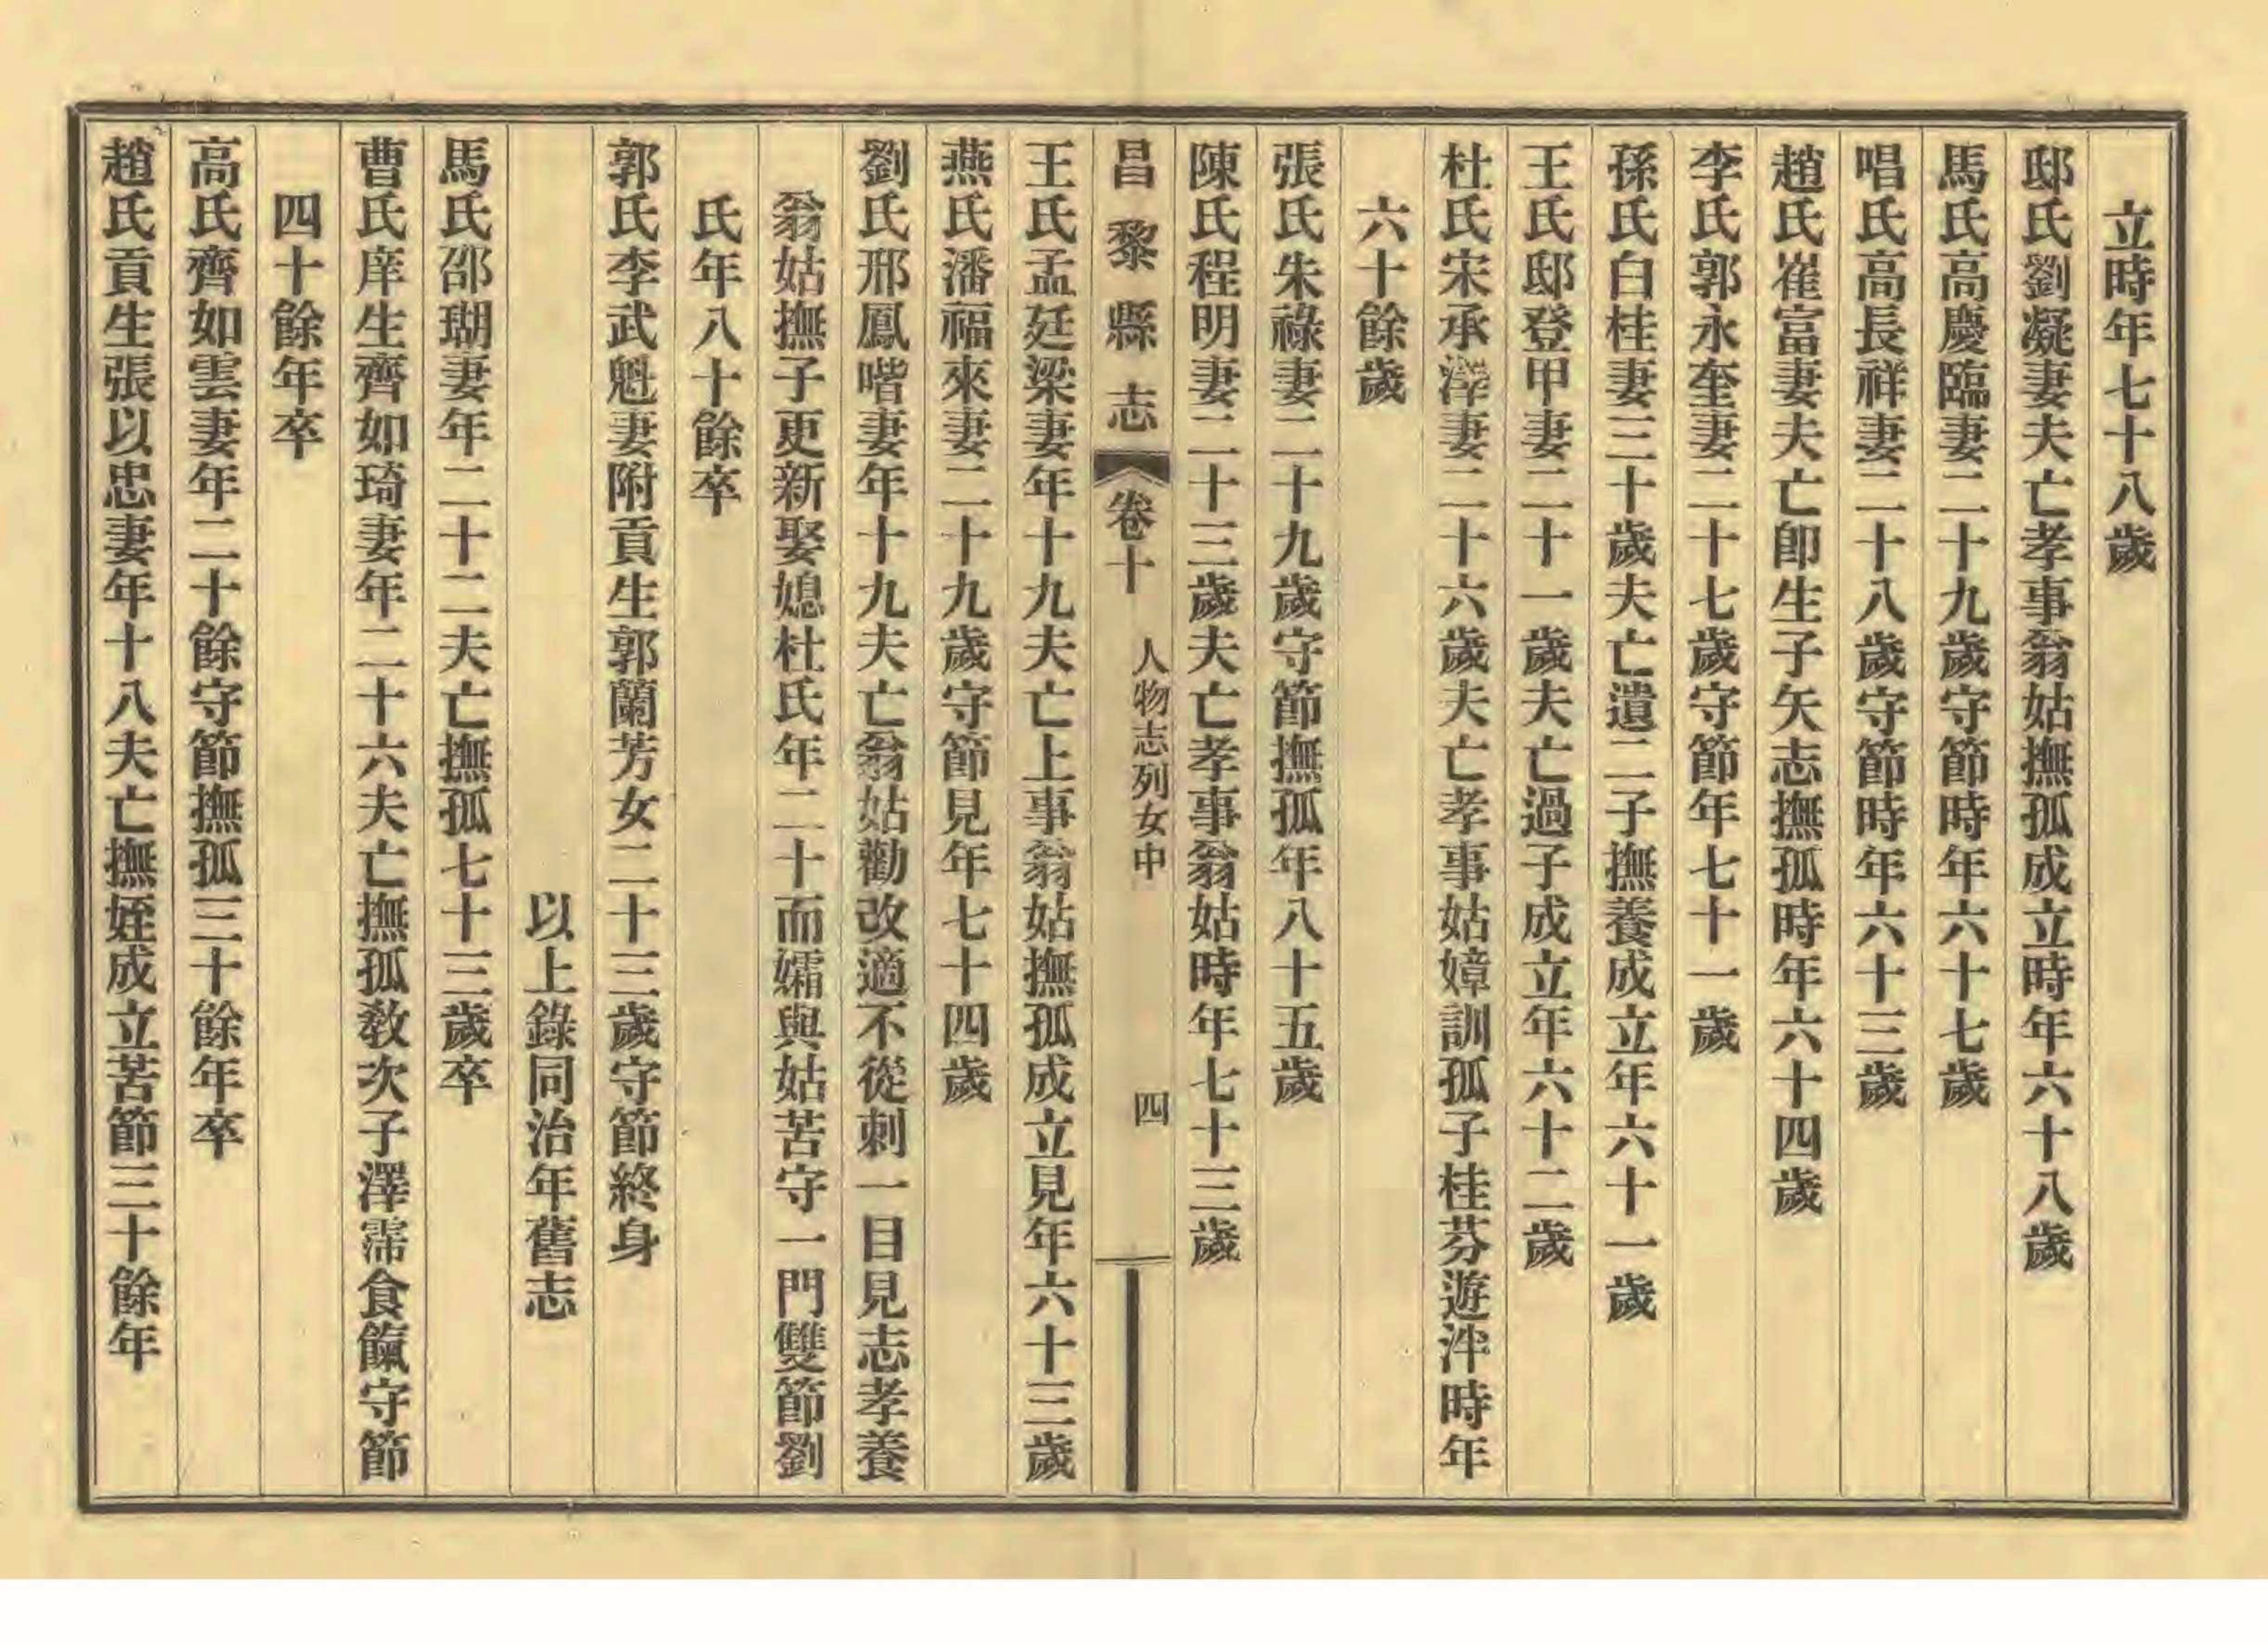 立時年七十八歲
邸氏劉凝妻夫亡孝事翁姑撫孤成立時年六十八歲
馬氏高慶臨妻二十九歲守節時年六十七歲
唱氏高長祥妻二十八歲守節時年六十三歲
趙氏崔富妻夫亡卽生子矢志撫孤時年六十四歲
李氏郭永奎妻二十七歲守節年七十一歲
孫氏白桂妻三十歲夫亡遺二子撫養成立年六十一歲
王氏邸登甲妻二十一歲夫亡過子成立年六十二歲
杜氏宋承澤妻二十六歲夫亡孝事姑嫜訓孤子桂芬遊泮時年
六十餘歲
張氏朱祿妻二十九歲守節撫孤年八十五歲
陳氏程明妻二十三歲夫亡孝事翁姑時年七十三歲
昌黎縣志 卷十 人物志列女中 四
王氏孟廷梁妻年十九夫亡上事翁姑撫孤成立見年六十三歲
燕氏潘福來妻二十九歲守節見年七十四歲
劉氏邢鳳喈妻年十九夫亡翁姑勸改適不從刺一目見志孝養
翁姑撫子更新娶媳杜氏年二十而孀與姑苦守一門雙節劉
氏年八十餘卒
郭氏李武魁妻附貢生郭蘭芳女二十三歲守節終身
以上錄同治年舊志
馬氏邵瑚妻年二十二夫亡撫孤七十三歲卒
曹氏庠生齊如琦妻年二十六夫亡撫孤敎次子澤霈食餼守節
四十餘年卒
高氏齊如雲妻年二十餘守節撫孤三十餘年卒
趙氏貢生張以忠妻年十八夫亡撫姪成立苦節三十餘年